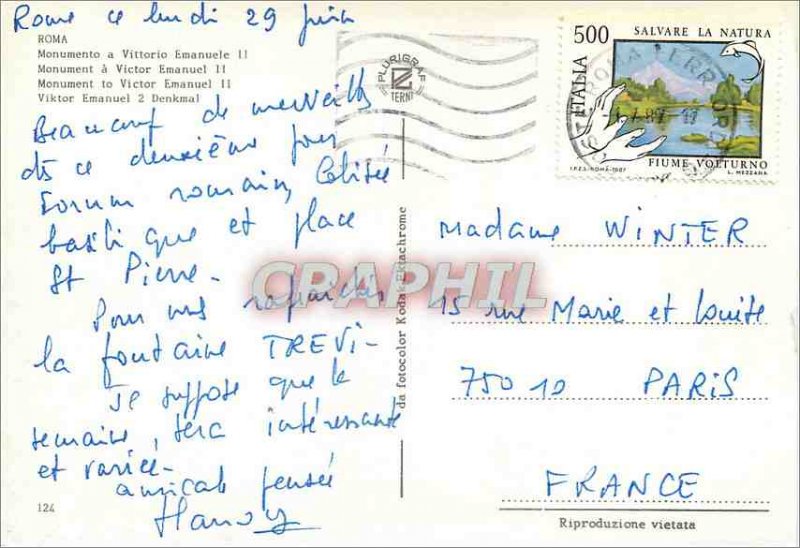 Rome ce lundi 29 juin
ROMA
Monumento a Vittorio Emanuele II
Monument à Victor Emanuel II
Monument to Victor Emanuel II
Viktor Emanuel 2 Denkmal
Beaucoup de merveilles
dès ce deuxième jour
Forum romain, Colisée
basilique et place
St Pierre-
Pour nous
la fontaine TREVI-
Je suppose que la
semaine, sera intéressante
et variée-
amicale pensée
124
PLURIGRAF
TERNI
500
SALVARE LA NATURA
ITALIA
FIUME VOLTURNO
I.P.Z.S.-ROMA-1987
L. MEZZANA
da fotocolor Kodak Ektachrome
CRAPHIL
Madame WINTER
15 rue Marie et Louise
75010 PARIS
FRANCE
Riproduzione vietata